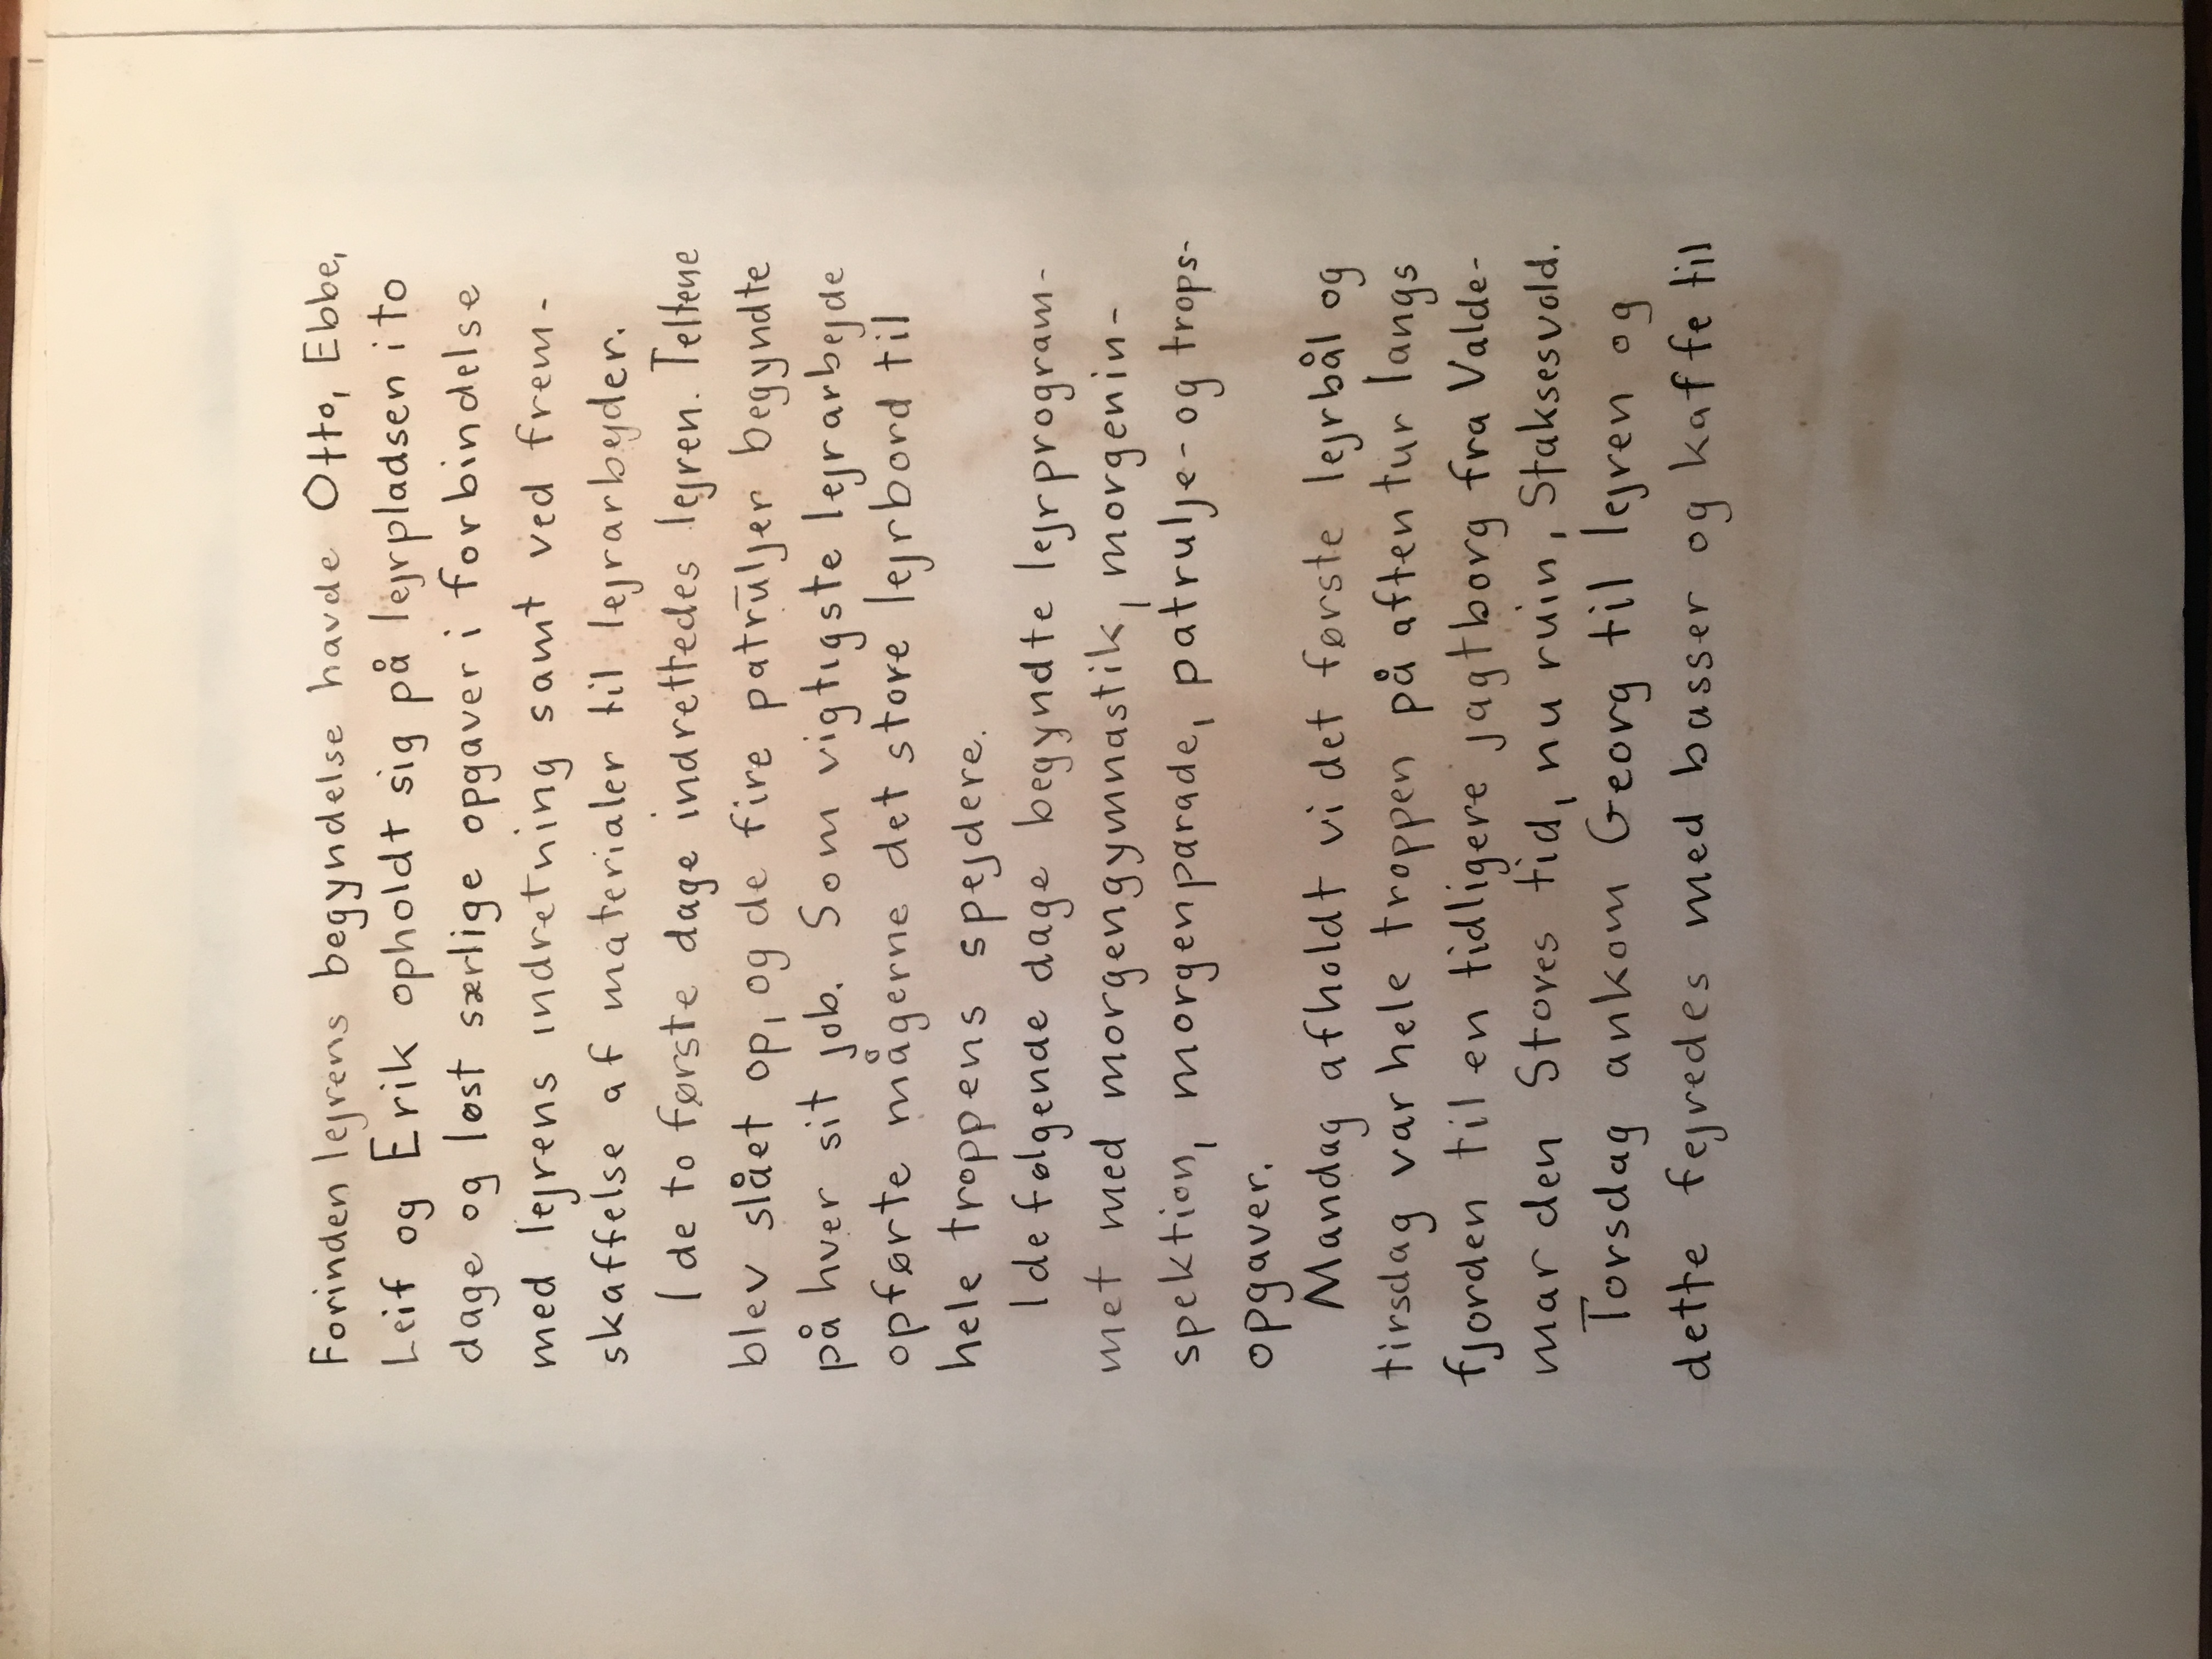 Forinden lejrens begyndelse havde Otto, Ebbe,
Leif og Erik opholdt sig på lejrpladsen i to
dage og løst særlige opgaver i forbindelse
med lejrens indretning samt ved frem-
skaffelse af materialer til lejrarbejder.
I de to første dage indrettedes lejren. Teltene
blev slået op, og de fire patrūljer begyndte
på hver sit job. Som vigtigste lejrarbejde
opførte mågerne det store lejrbord til
hele troppens spejdere.
I de følgende dage begyndte lejrprogram-
met med morgengymnastik, morgenin-
spektion, morgenparade, patrulje- og trops-
opgaver.
Mandag afholdt vi det første lejrbål og
tirsdag var hele troppen på aften tur langs
fjorden til en tidligere jagtborg fra Valde-
mar den Stores tid, nu ruin, Staksesvold.
Torsdag ankom Georg til lejren og
dette fejredes med basser og kaffe til